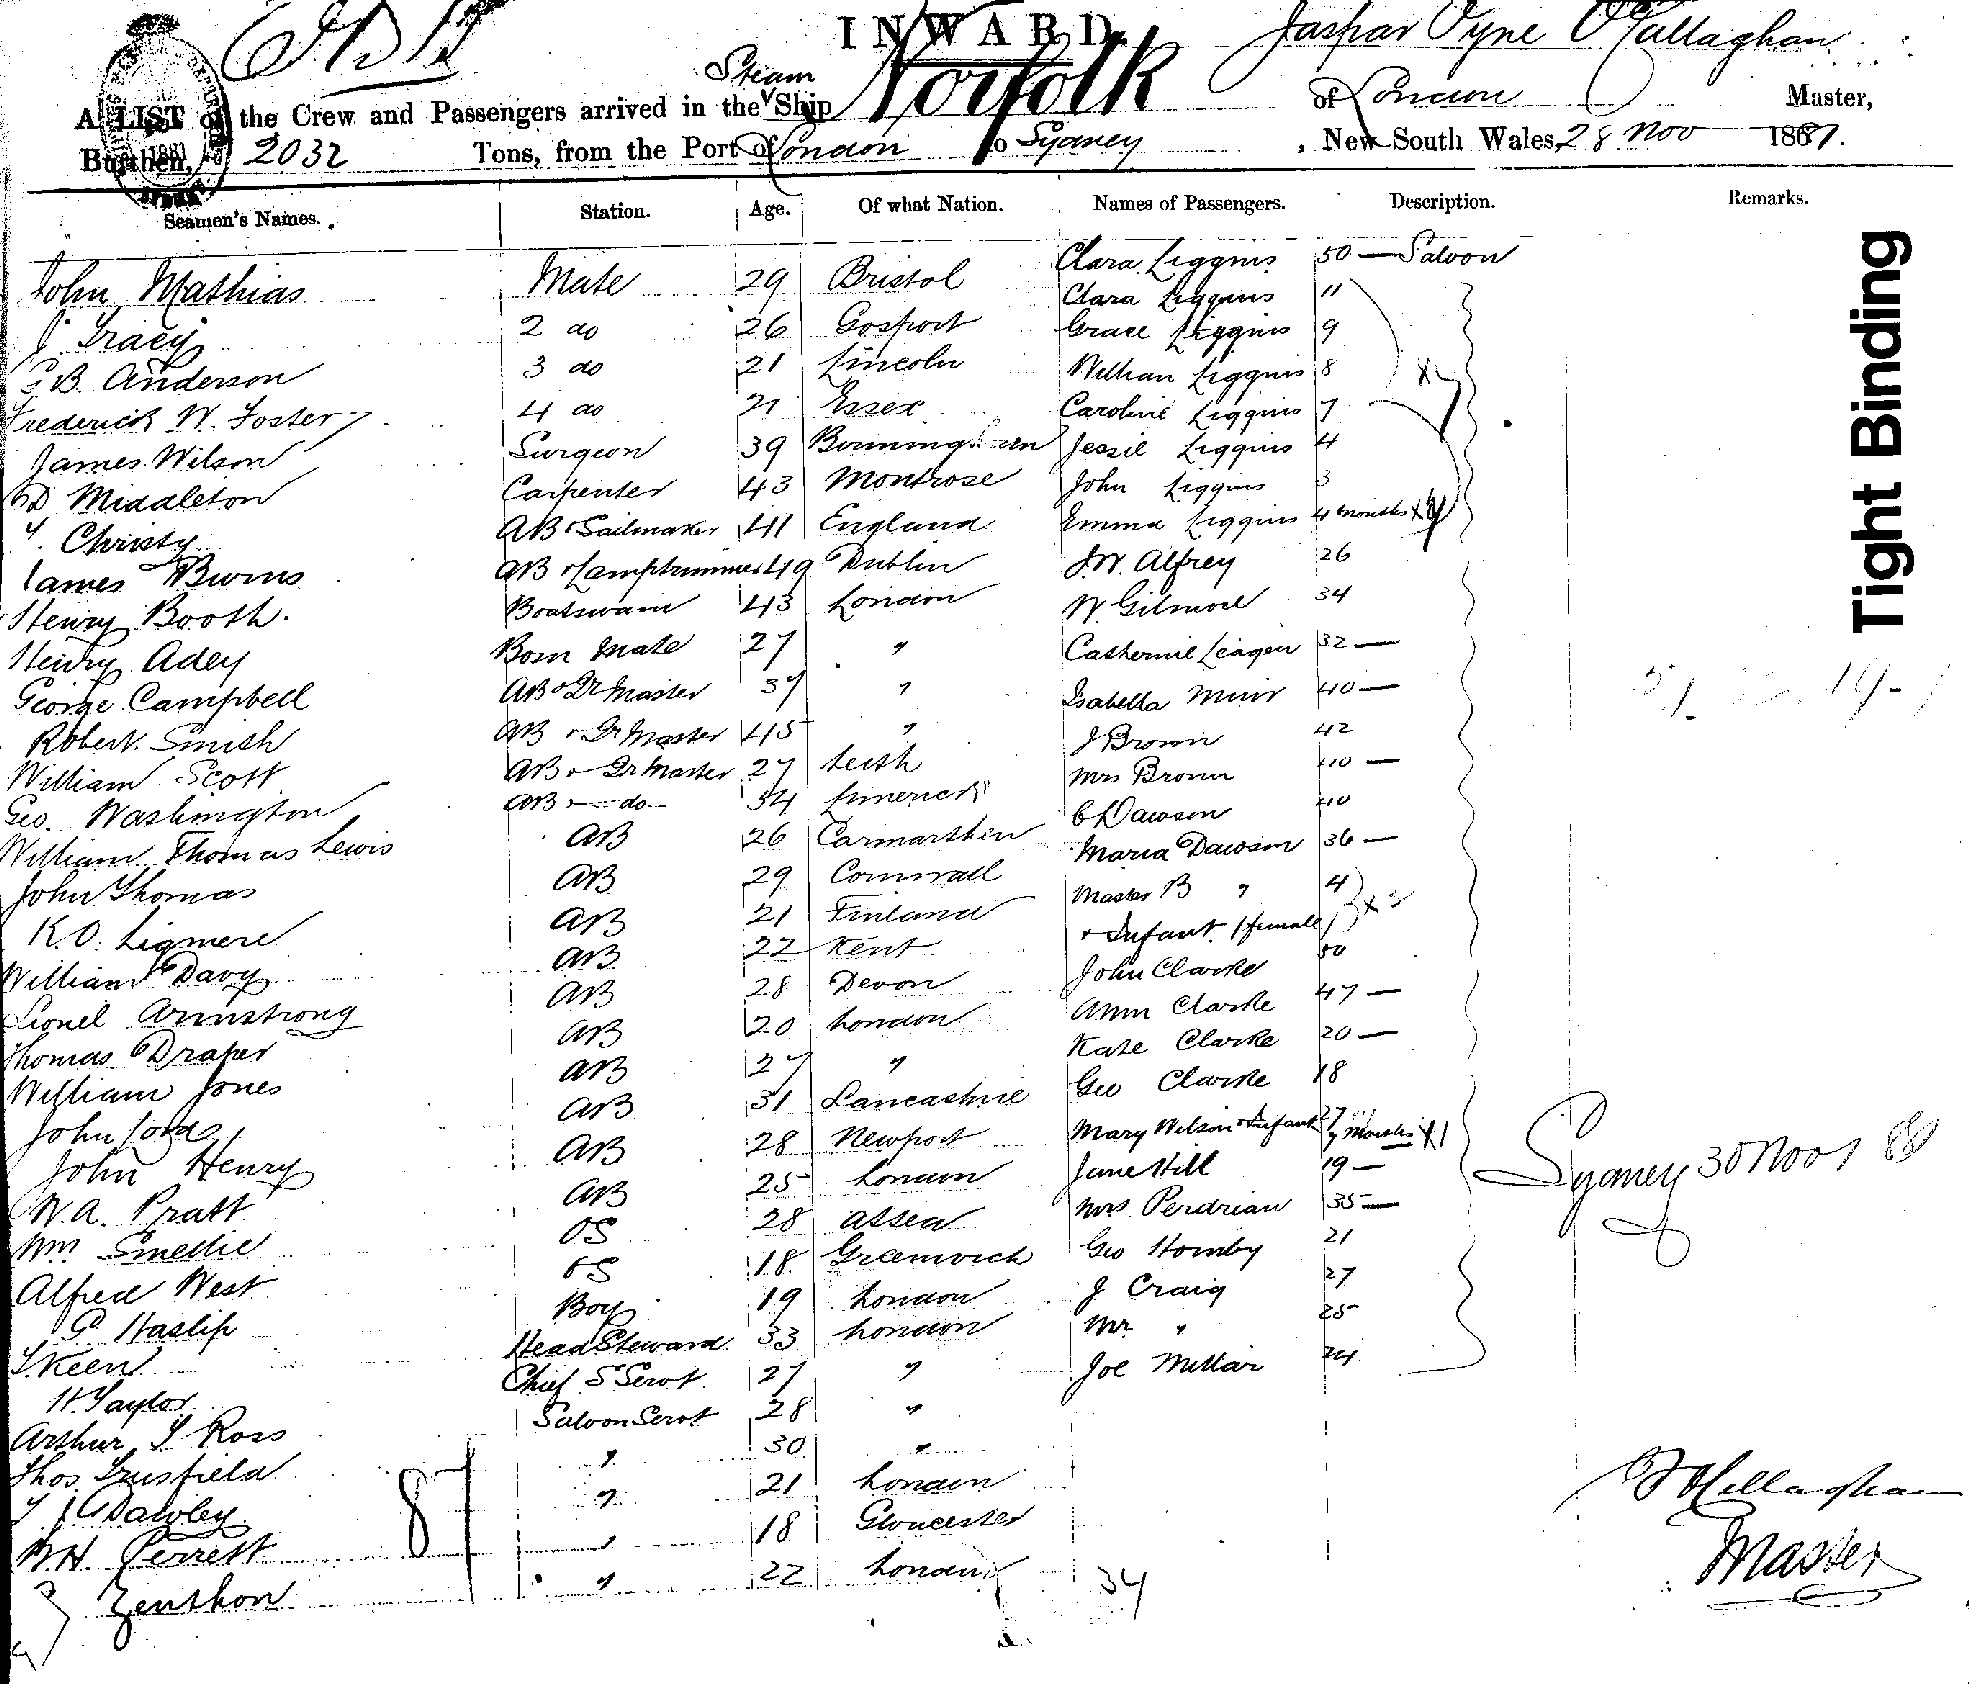 INWARD.
Jaspar Pyne O'Callaghan
Steam
A LIST of the Crew and Passengers arrived in the Ship Norfolk of London Master,
Burthen, 2032 Tons, from the Port of London to Sydney, New South Wales, 28 Nov 1881.
Seamen's Names. Station. Age. Of what Nation. Names of Passengers. Description. Remarks.
John Mathias Mate 29 Bristol Clara Liggins 50 — Saloon
J Tracy 2 do 26 Gosport Clara Liggins 11
B. Anderson 3 do 21 Lincoln Grace Liggins 9
Frederick W. Foster 4 do 21 Essex William Liggins 8
James Wilson Surgeon 39 Birmingham Caroline Liggins 7
D Middleton Carpenter 43 Montrose Jessie Liggins 4
Christy AB & Sailmaker 41 England John Liggins 3
James Burns AB & Lamptrimmer 49 Dublin Emma Liggins 4 months
Henry Booth. Boatswain 43 London J.W. Alfrey 26
Henry Adey Bosn Mate 27 " W. Gilmore 34
George Campbell AB & Qr Master 37 " Catherine 32 —
Robert Smith AB & Qr Master 45 " Isabella Muir 40 —
William Scott AB & Qr Master 27 Leith J Brown 42
Geo. Washington AB & — do — 34 Limerick Mrs Brown 40 —
William Thomas Lewis AB 26 Carmarthen C Dawson 40
John Thomas AB 29 Cornwall Maria Dawson 36 —
K.O. AB 21 Finland Master B " 4
William Davy AB 22 Kent & Infant (female)
Lionel Armstrong AB 28 Devon John Clarke 50
Thomas Draper AB 20 London Ann Clarke 47 —
William Jones AB 27 " Kate Clarke 20 —
John AB 31 Lancashire Geo Clarke 18
John Henry AB 28 Newport Mary Wilson & Infant 27 7 Months X1
W.A. Pratt AB 25 London Jane Hill 19 —
Wm Smellie OS 28 Mrs Perdriau 35 —
Alfred West OS 18 Greenwich Geo Hornby 21
Haslip Boy 19 London J Craig 27
Keen Head Steward 33 London Mr " 25
H. Taylor Chief S Servt. 27 " Joe Millar 24
Arthur Ross Saloon Servt 28 "
Thos. " 30 "
Dawley " 21 London
W.H. Perrett " 18 Gloucester
Zenthon " 22 London
87
34
Sydney 30 Nov 1881
O'Callaghan
Master
Tight Binding